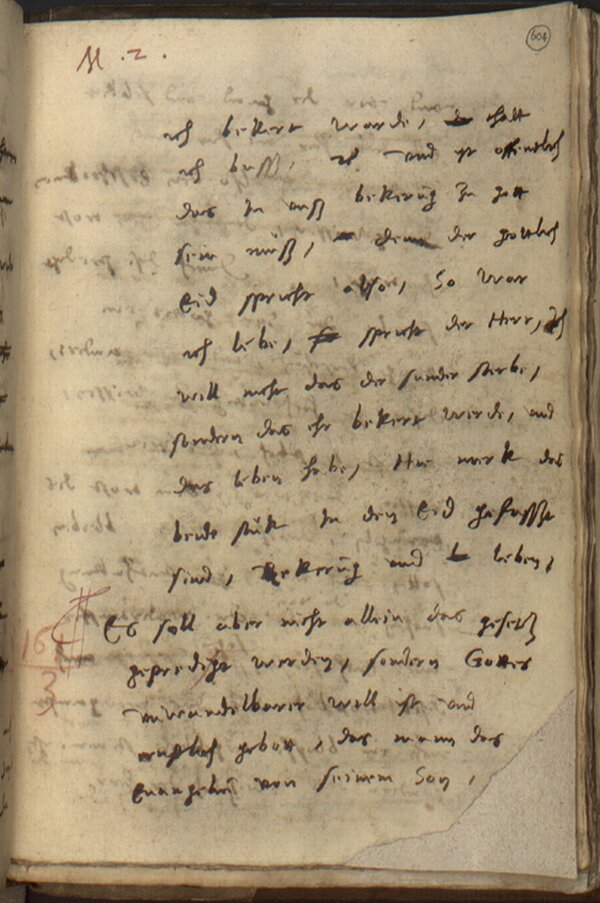 604
M . 2 .
ich bekert werde, erhalt
ich buss, und ist offentlich
das da auss bekerung zu gott
sein muss, denn der gottlich
Eid spricht also, So war
ich lebe, spricht der Herr, Ich
will nicht das der sunder sterbe,
sondern das ehr bekert werde, und
das leben habe, Hie merk das
beide stuk in den Eid gefasst
sind, Bekerung und leben,
Es soll aber nicht allein das gesetz
gepredigt werden, sondern Gottes
unwandelbarer will ist und
ernstlich gebott, das mann das
Euangelium von seinem Son,